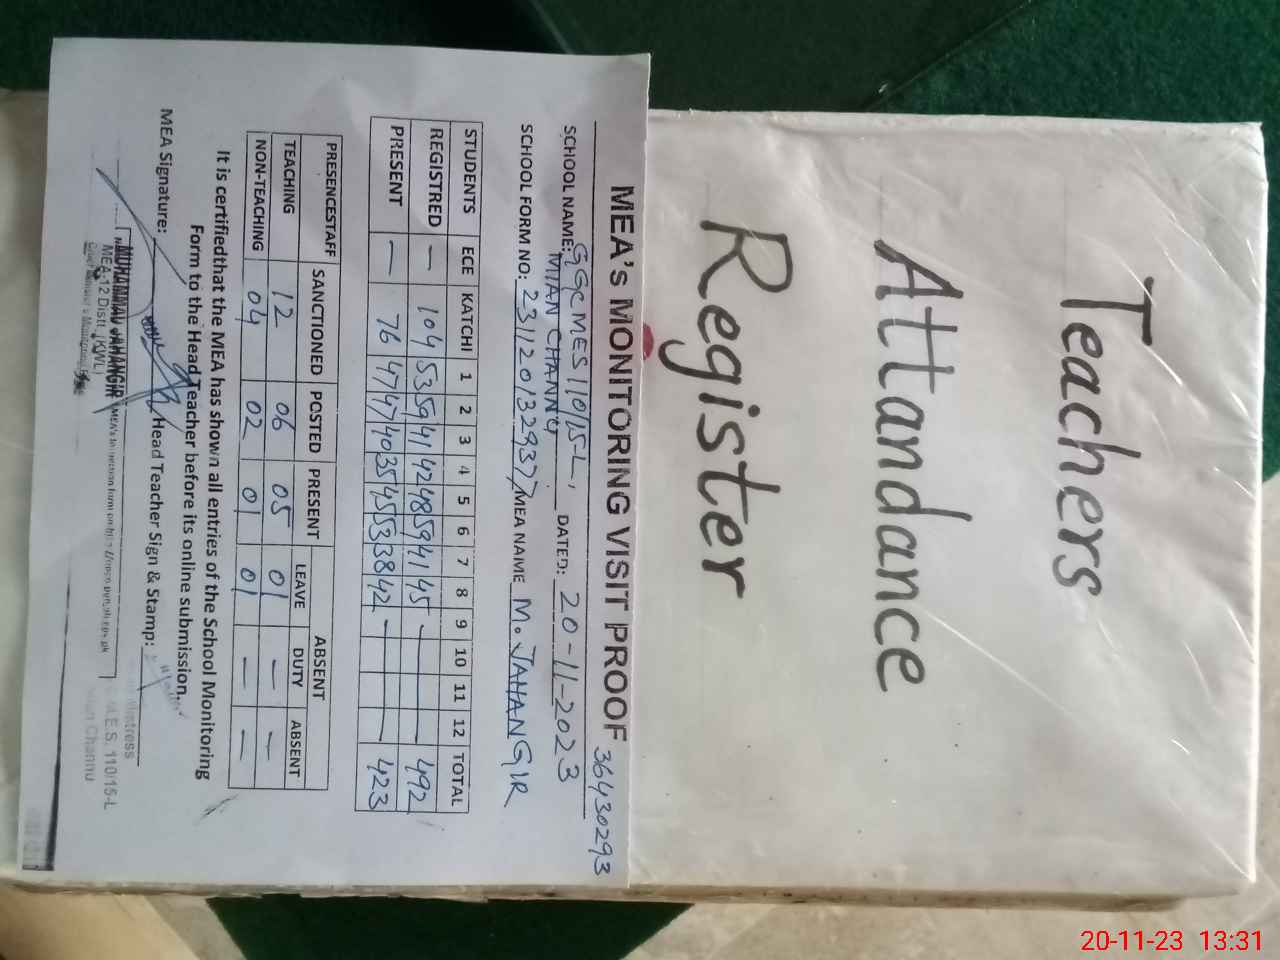 Teachers
Attandance
Register
MEA's MONITORING VISIT PROOF 36430293
SCHOOL NAME: GGCMES 110/15-L, MIAN CHANNU DATED: 20-11-2023
SCHOOL FORM NO: 2311201329377 MEA NAME M. JAHANGIR
STUDENTS ECE KATCHI 1 2 3 4 5 6 7 8 9 10 11 12 TOTAL
REGISTRED — 104 53 59 41 42 48 59 41 45 — 492
PRESENT — 76 47 47 40 35 45 53 38 42 — 423
PRESENCESTAFF SANCTIONED POSTED PRESENT ABSENT
LEAVE DUTY ABSENT
TEACHING 12 06 05 01 — —
NON-TEACHING 04 02 01 01 — —
It is certifiedthat the MEA has shown all entries of the School Monitoring
Form to the Head Teacher before its online submission.
MEA Signature: Head Teacher Sign & Stamp:
MUHAMMAD JAHANGIR
MEA-12 Distt. (KWL)
M.E.S. 110/15-L
Mian Channu
20-11-23 13:31